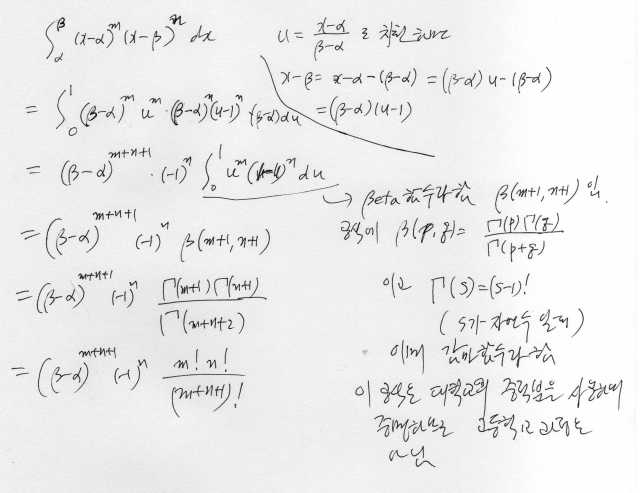 ∫_α^β (x-α)^m (x-β)^n dx
u = (x-α)/(β-α) 로 치환하면
x-β = x-α-(β-α) = (β-α)u-(β-α)
= (β-α)(u-1)
= ∫_0^1 (β-α)^m u^m · (β-α)^n (u-1)^n · (β-α)du
= (β-α)^{m+n+1} · (-1)^n ∫_0^1 u^m (1-u)^n du
→ Beta 함수라 함 β(m+1, n+1) 임.
= (β-α)^{m+n+1} (-1)^n β(m+1, n+1)
공식에 β(p, q) = Γ(p)Γ(q) / Γ(p+q)
= (β-α)^{m+n+1} (-1)^n Γ(m+1)Γ(n+1) / Γ(m+n+2)
이고 Γ(s) = (s-1)!
(s가 자연수 일때)
= (β-α)^{m+n+1} (-1)^n m! n! / (m+n+1)!
이때 감마함수라 함
이 공식은 대학교의 중적분을 사용하여
증명하므로 고등학교 과정은
아님